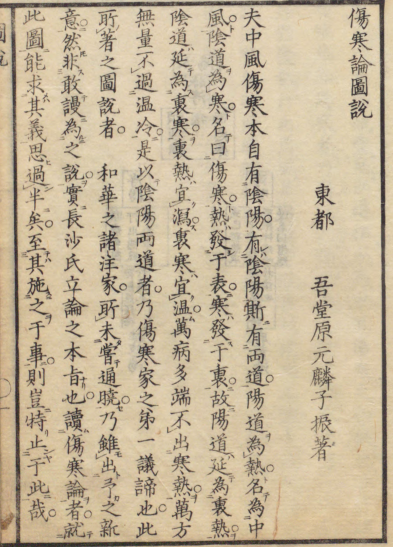 傷寒論圖說
東都　吾堂原元麟子振著
夫中風傷寒本自有陰陽有陰陽斯有兩道陽道為熱名為中
風陰道為寒名曰傷寒熱發于表寒發于裏故陽道延為裏熱
陰道延為裏寒裏熱宜瀉裏寒宜溫萬病多端不出寒熱萬方
無量不過温冷是以陰陽兩道者乃傷寒家之第一議諦也此
所著之圖說者　和華之諸注家所未嘗通曉乃雖出予之新
意然非敢謾為之說實長沙氏立論之本旨也讀傷寒論者就
此圖能求其義思過半矣至其施之于事則豈特止于此哉